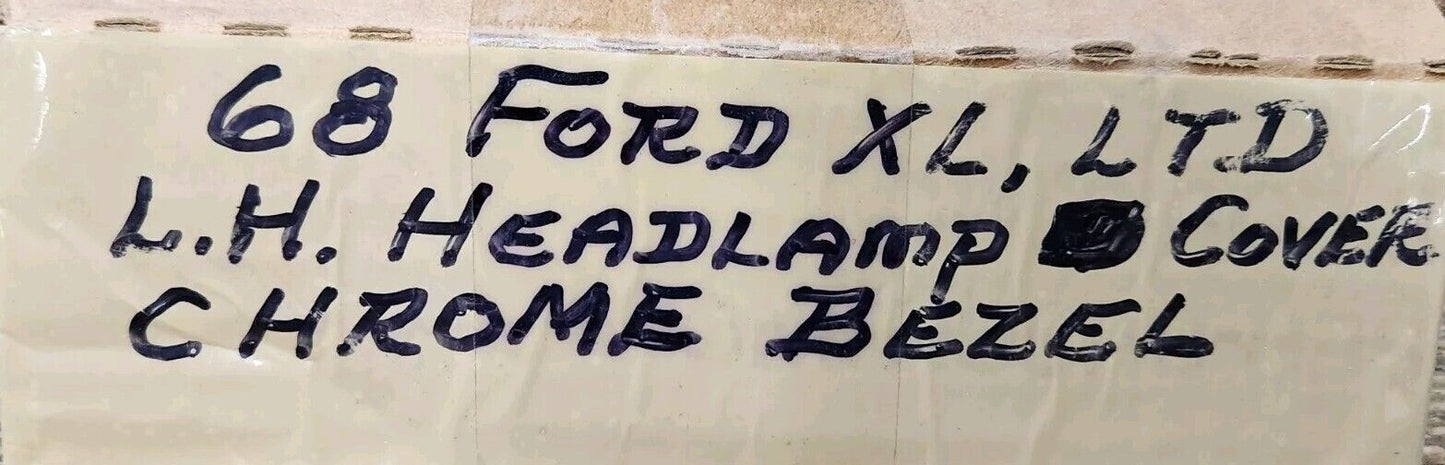 68 FORD XL, LTD
L.H. HEADLAMP COVER
CHROME BEZEL